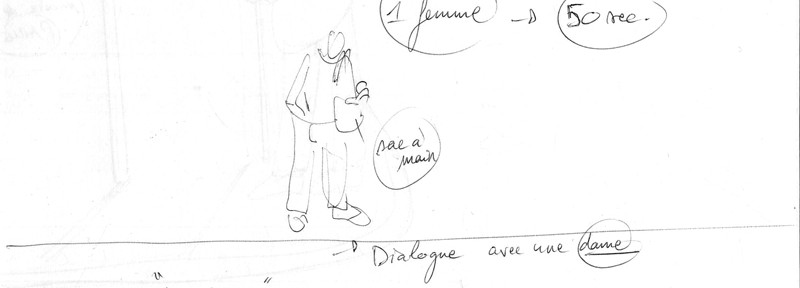 1 femme → 50 sec.
sac à
main
→ Dialogue avec une dame
" "